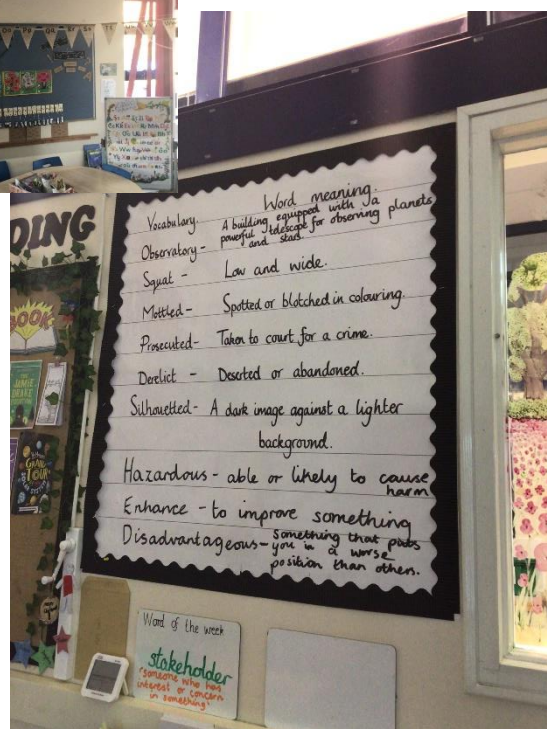 DING
BOOK
THE
JAMIE
DRAKE
EQUATION
GRAND
TOUR
Vocabulary. Word meaning.
Observatory - A building equipped with a
powerful telescope for observing planets
and stars.
Squat - Low and wide.
Mottled - Spotted or blotched in colouring.
Prosecuted - Taken to court for a crime.
Derelict - Deserted or abandoned.
Silhouetted - A dark image against a lighter
background.
Hazardous - able or likely to cause
harm
Enhance - to improve something
Disadvantageous - something that puts
you in a worse
position than others.
Word of the week
stakeholder
"someone who has
interest or concern
in something"